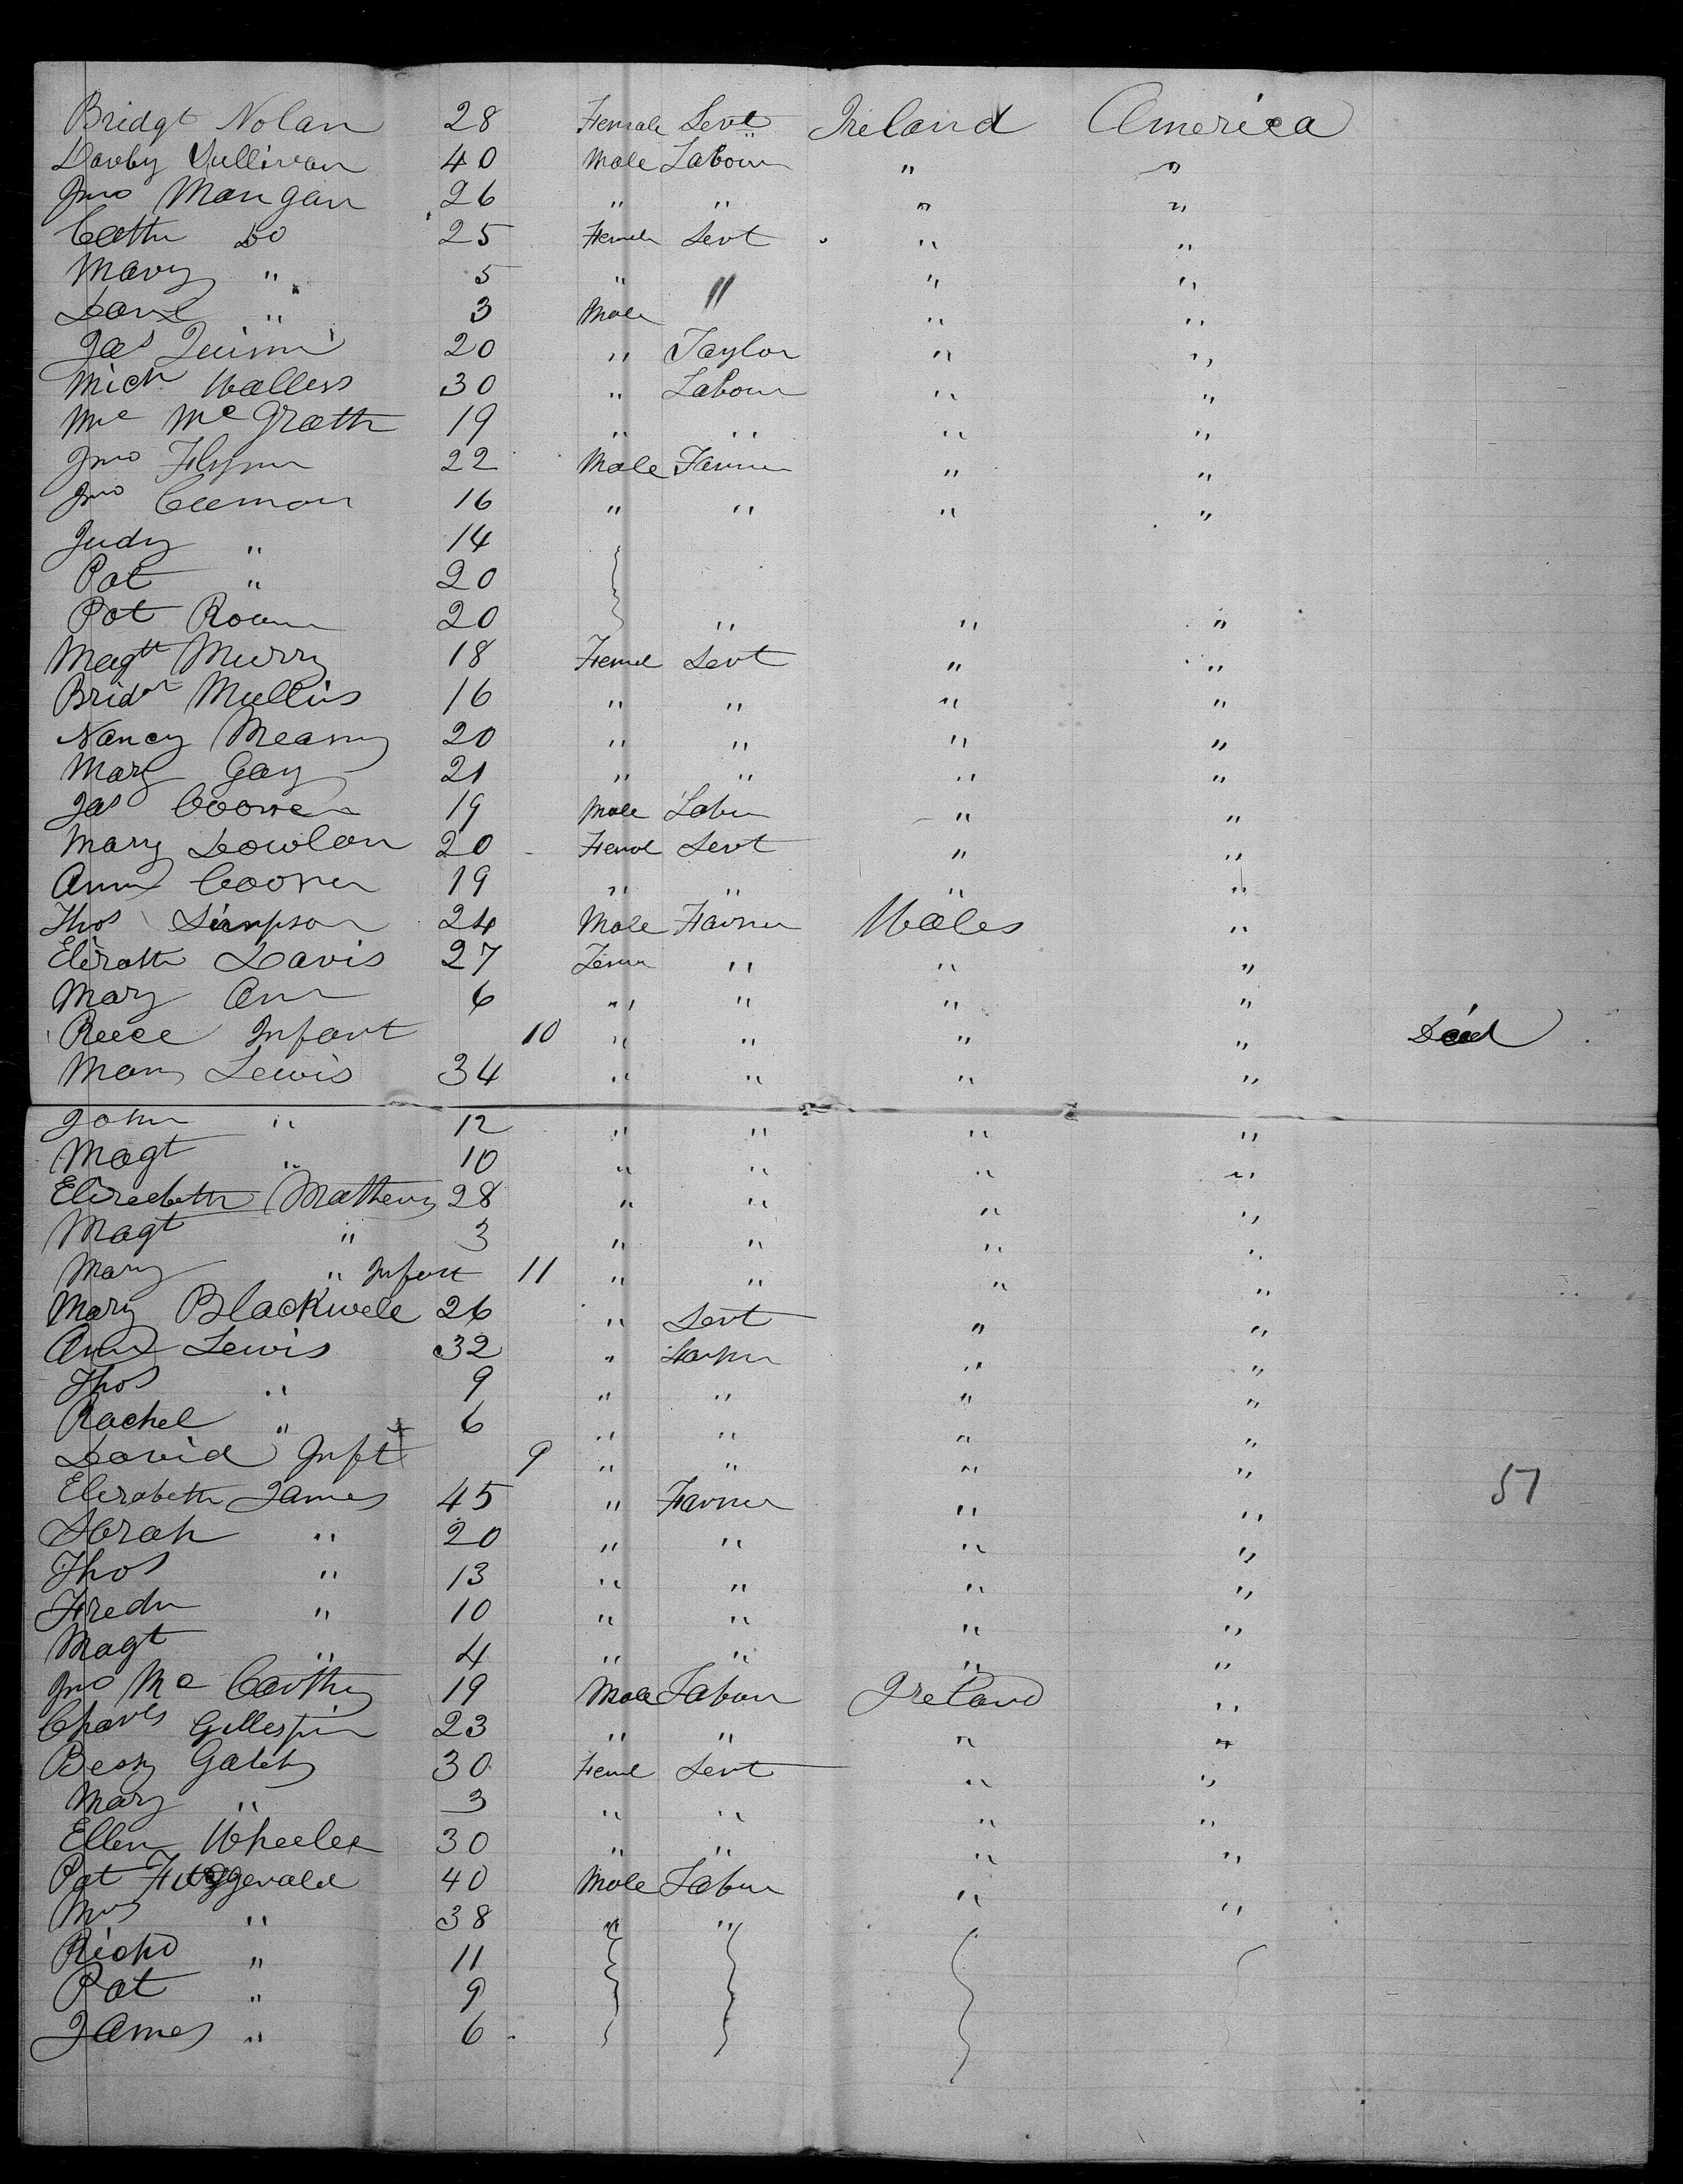 Bridgt Nolan 28 Female Sevt Ireland America
Darby Sullivan 40 Male Labour " "
Jno Mangan 26 " " " "
Cathn Do 25 Femle Sevt " "
Mary " 5 " " " "
Danl " 3 Male " "
Jas Quinn 20 " Taylor " "
Mich Walless 30 " Labour " "
Mc McGrath 19 " " " "
Jno Flynn 22 Male Farmer " "
Jno 16 " " " "
Judy " 14
Pat " 20
Pat 20 " " "
Magtt Murry 18 Femel Sevt " "
Bridgt Mullins 16 " " " "
Nancy Meany 20 " " " "
Mary Gay 21 " " " "
Jas 19 Male Labur " "
Mary Dowlan 20 Femel Sevt " "
Ann 19 " " " "
Thos Simpson 24 Male Farmer Wales "
Elizath Davis 27 Femm " " "
Mary Ann 6 " " " "
Reece Infant 10 " " " " Dead
Mary Lewis 34 " " " "
John " 12 " " " "
Magt " 10 " " " "
Elizebeth Mathews 28 " " " "
Magt " 3 " " " "
Mary " Infant 11 " " " "
Mary Blackwele 26 " Sevt " "
Ann Lewis 32 " Farmer " "
Thos " 9 " " " "
Rachel " 6 " " " "
David Inft 9 " " " "
Elizabeth James 45 " Farmer " " 51
Sarah " 20 " " " "
Thos " 13 " " " "
Fredn " 10 " " " "
Magt " 4 " " " "
Jno McCarthy 19 Male Labour Ireland "
Charls Gillespin 23 " " " "
Bessy 30 Femel Sevt " "
Mary " 3 " " " "
Ellen Wheeler 30 " " " "
Pat Fitzggerald 40 Male Labur " "
Mrs " 38 " "
Richd " 11
Pat " 9
James " 6